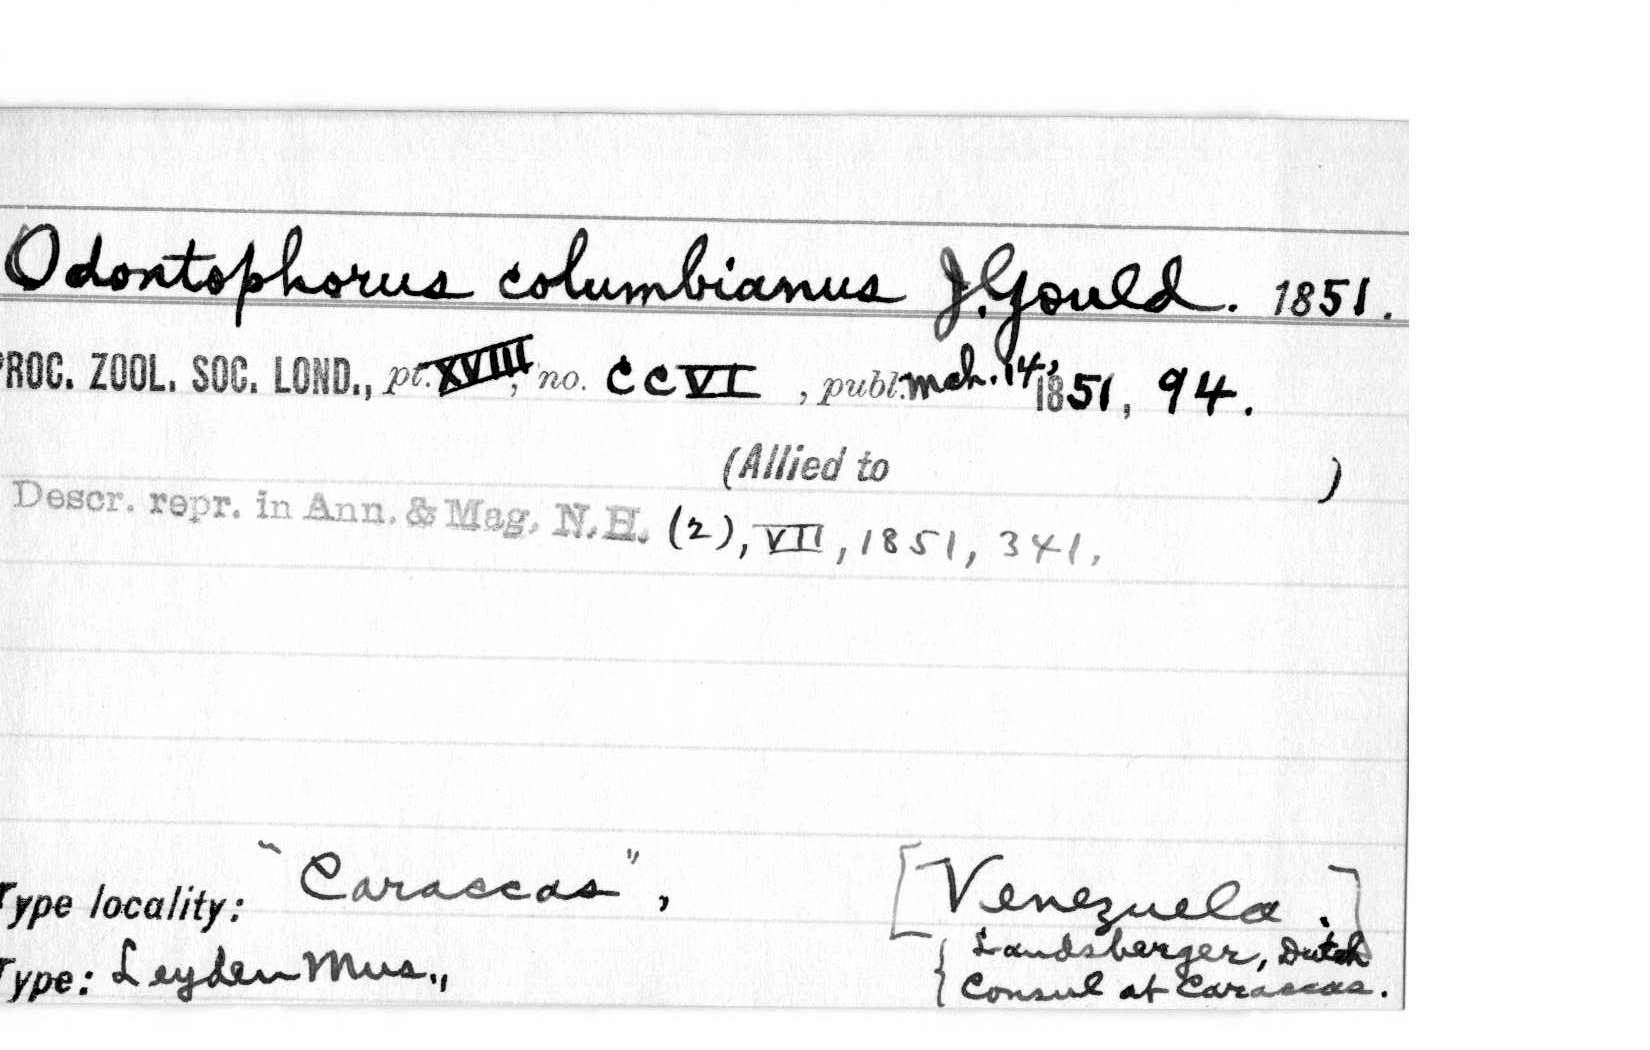 Odontophorus columbianus J. Gould. 1851.
PROC. ZOOL. SOC. LOND., pt. XVIII, no. CCVI, publ. Mch. 14, 1851, 94.
(Allied to )
Descr. repr. in Ann. & Mag. N.H. (2), VII, 1851, 341.
Type locality: "Caraccas", [Venezuela.]
Type: Leyden Mus., { Landsberger, Dutch
Consul at Caraccas.